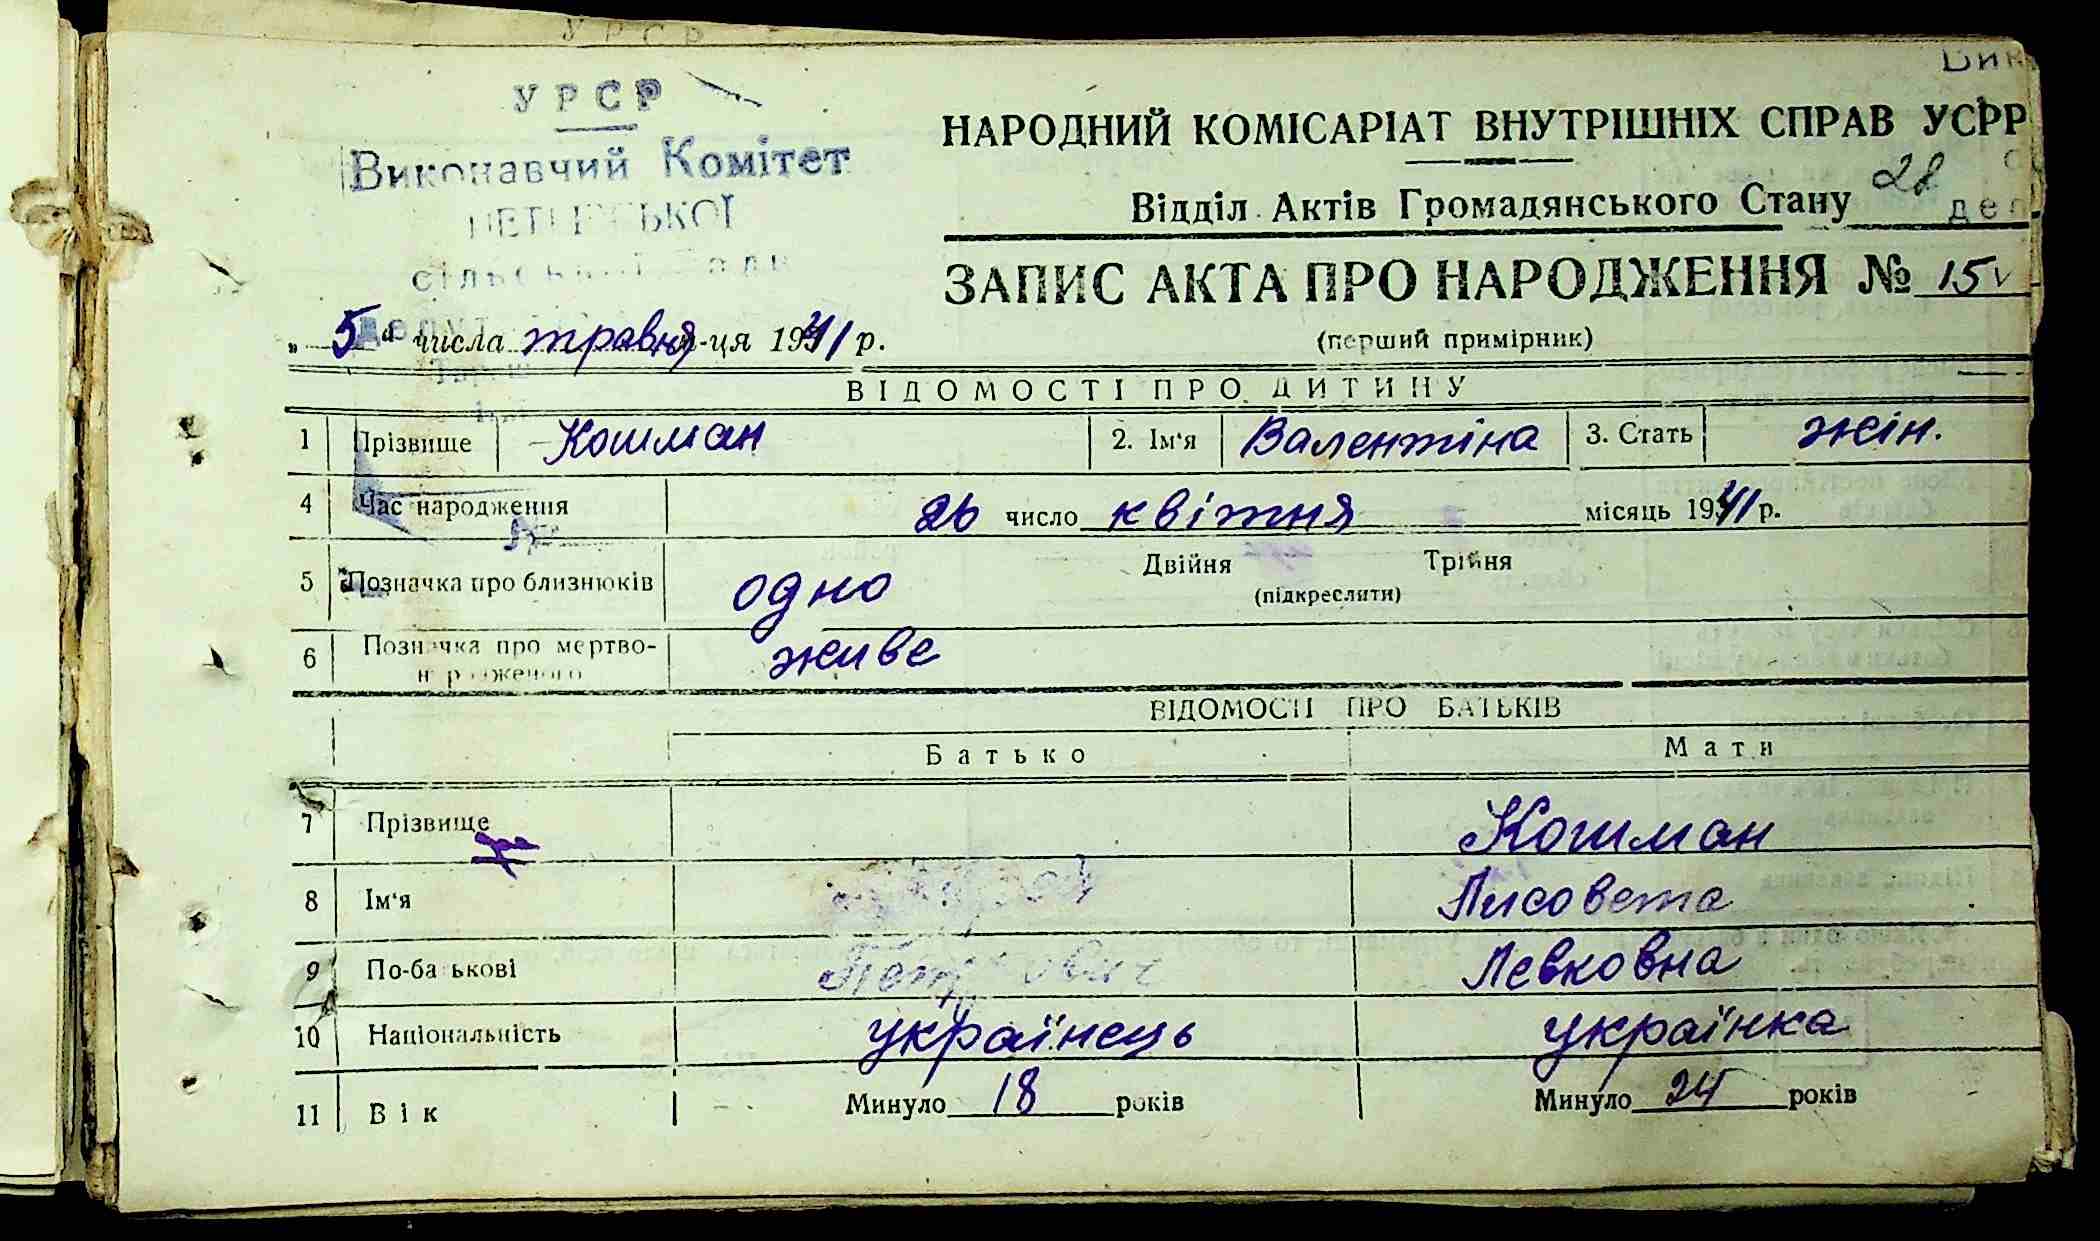 УРСР
УРСР
Вик
Виконавчий Комітет
НАРОДНИЙ КОМІСАРІАТ ВНУТРІШНІХ СПРАВ УСРР
Відділ Актів Громадянського Стану 28
ЗАПИС АКТА ПРО НАРОДЖЕННЯ № 15
„ 5 " числа травня м-ця 1941 р.
(перший примірник)
ВІДОМОСТІ ПРО ДИТИНУ
1 Прізвище Кошман 2. Ім'я Валентіна 3. Стать жін.
4 Час народження 26 число квітня місяць 1941 р.
5 Позначка про близнюків одно Двійня Трійня
(підкреслити)
6 Позначка про мертво-
народженого живе
ВІДОМОСТІ ПРО БАТЬКІВ
Батько Мати
7 Прізвище Кошман
8 Ім'я Лисовета
9 По-батькові Петрович Левковна
10 Національність українець українка
11 Вік Минуло 18 років Минуло 24 років